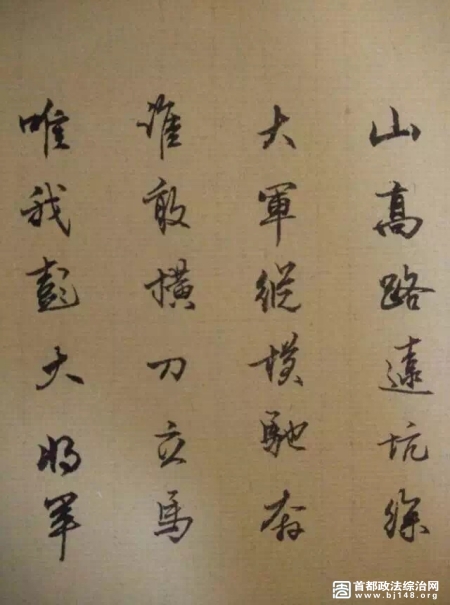 山高路遠坑深
大軍縱横馳奔
誰敢横刀立馬
唯我彭大将軍
首都政法综治网
www.bj148.org